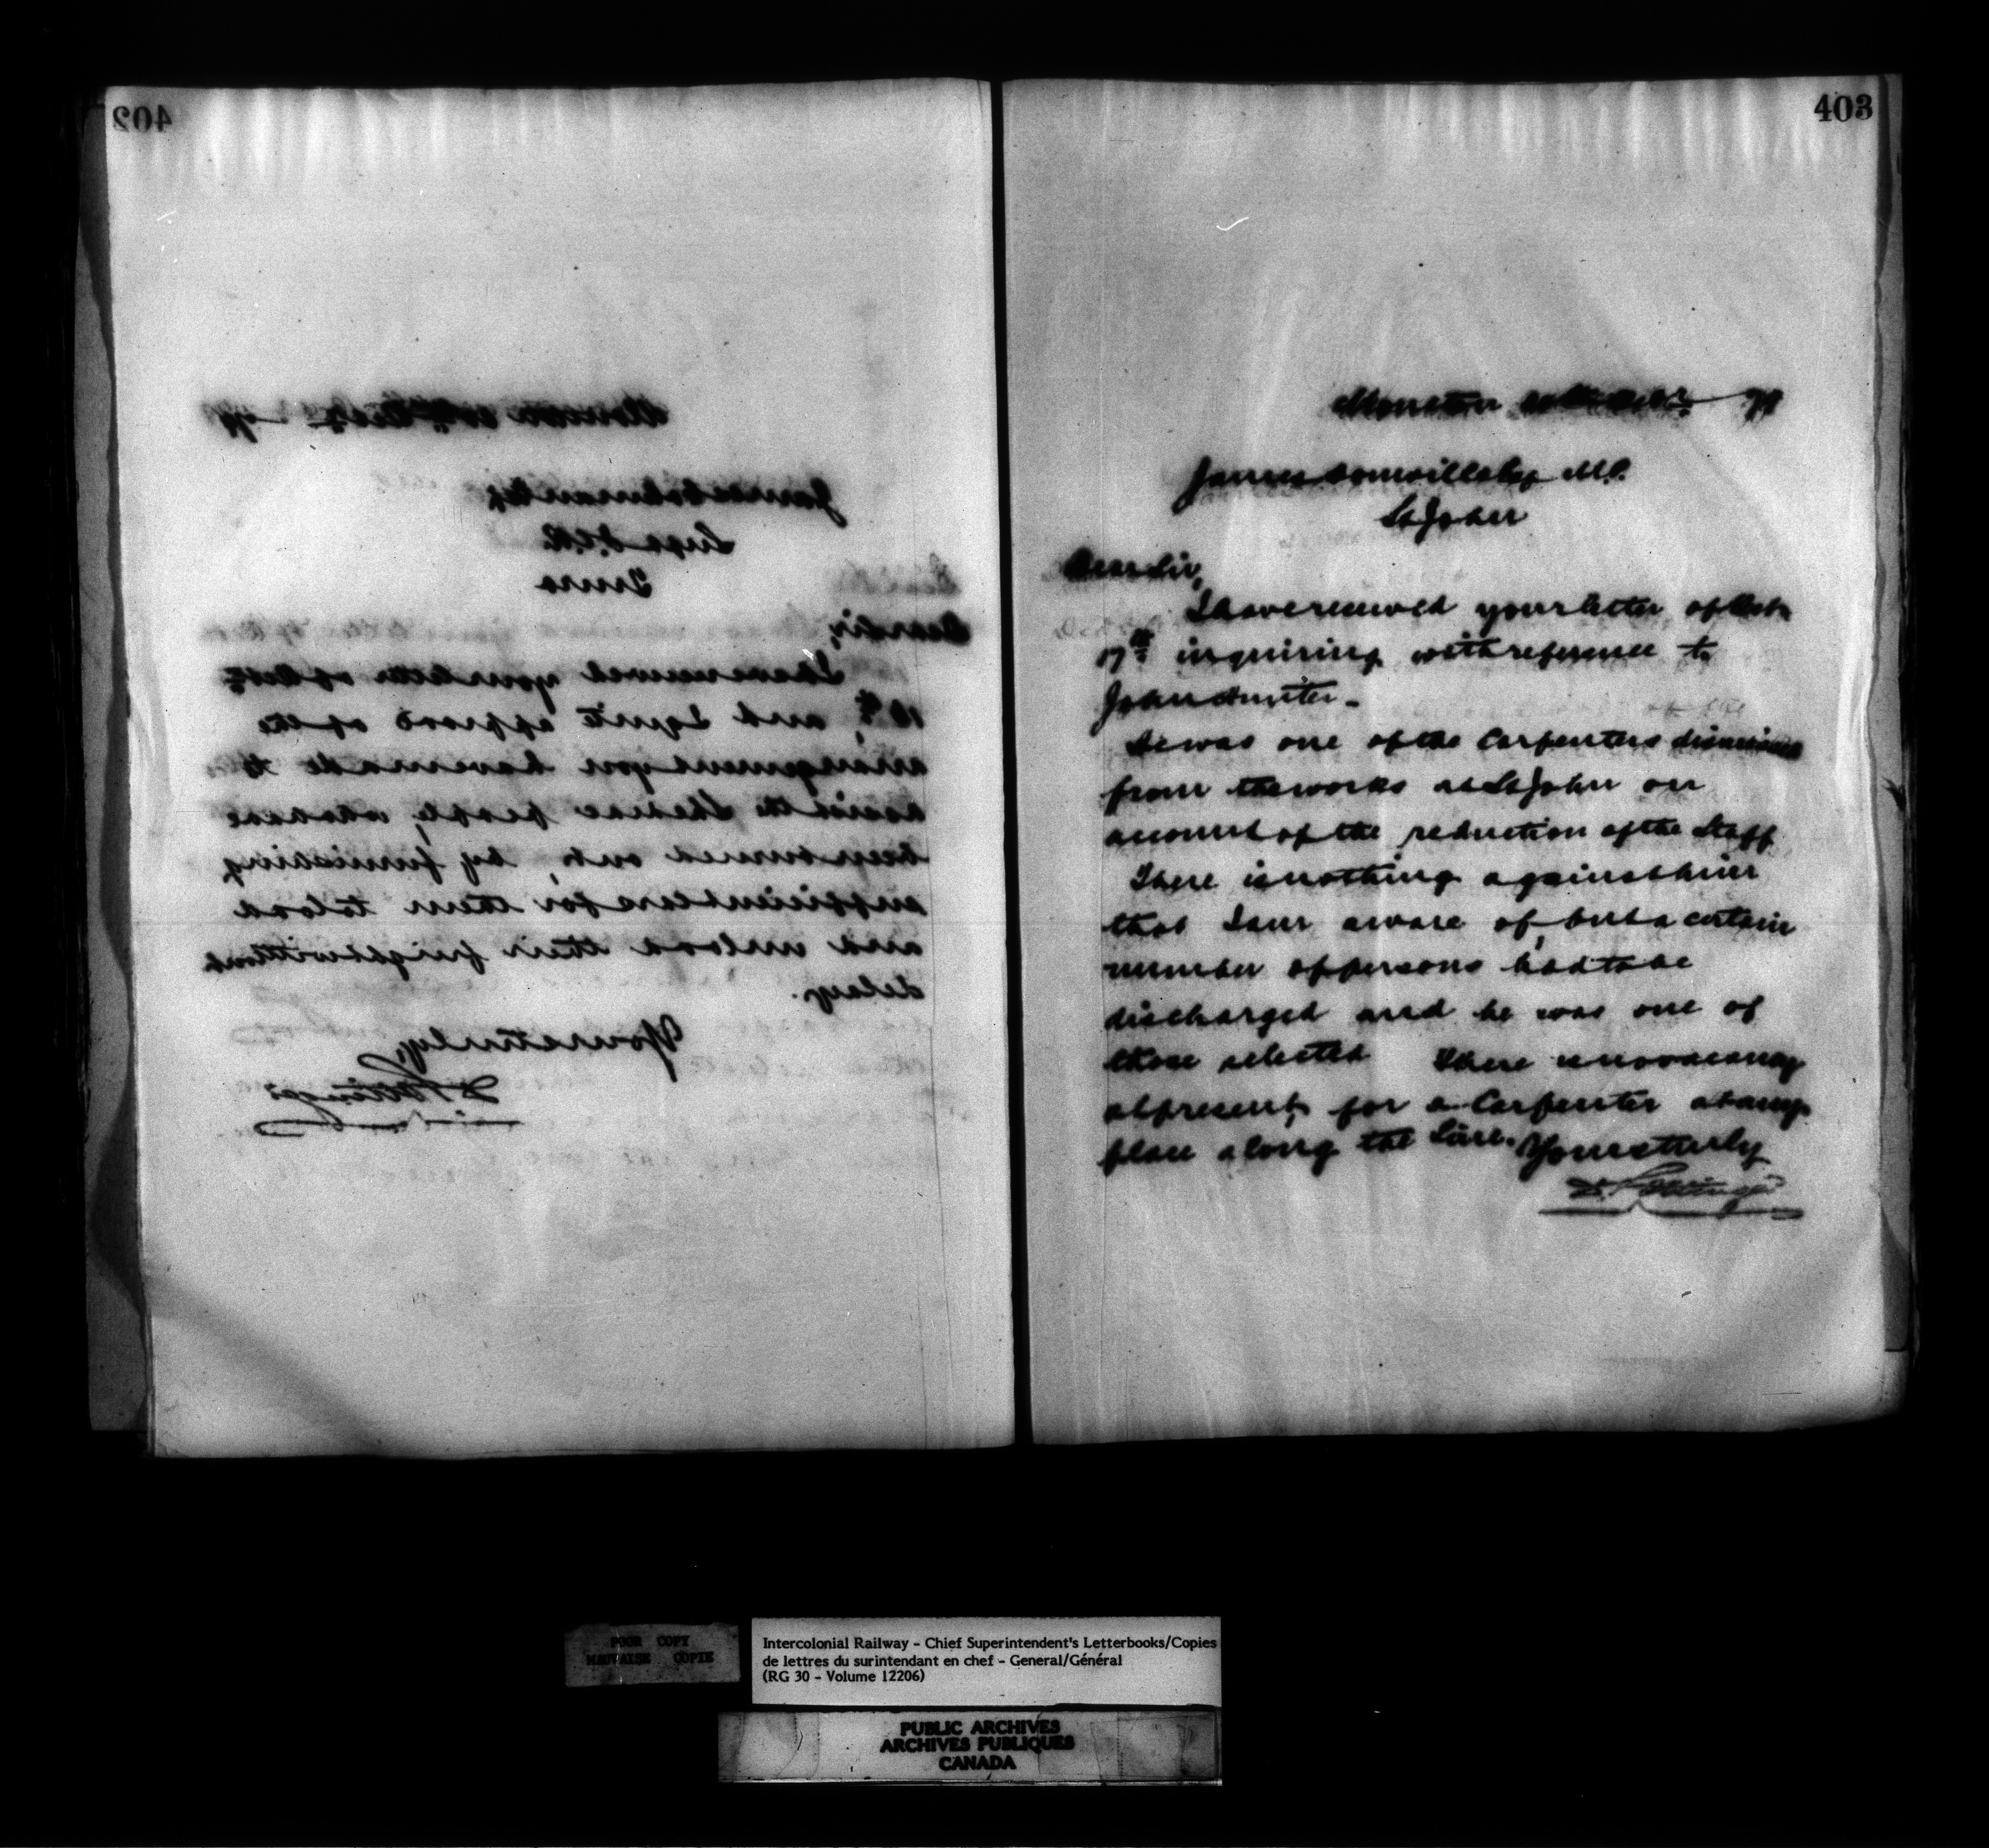 402
Moncton 20th Octr 79
James Coleman Esq
Supt I.C.R.
Truro
Dear Sir,
I have received your letter of Octr
18th, and I quite approve of the
arrangement you have made to
assist the Shediac people, who have
been burned out, by furnishing
sufficient cars for them to load
and unload their freight without
delay.
Yours truly,
D Pottinger
403
Moncton 20th Octr 79
James Domville Esq M.P.
St John
Dear Sir,
I have received your letter of Oct
17th inquiring with reference to
John Hunter.
He was one of the Carpenters dismissed
from the works at St John on
account of the reduction of the Staff
There is nothing against him
that I am aware of, but a certain
number of persons had to be
discharged and he was one of
those selected There is no vacancy
at present, for a Carpenter at any
place along the Line. Yours truly
D. Pottinger
POOR COPY
MAUVAISE COPIE
Intercolonial Railway - Chief Superintendent's Letterbooks/Copies
de lettres du surintendant en chef - General/Général
(RG 30 - Volume 12206)
PUBLIC ARCHIVES
ARCHIVES PUBLIQUES
CANADA